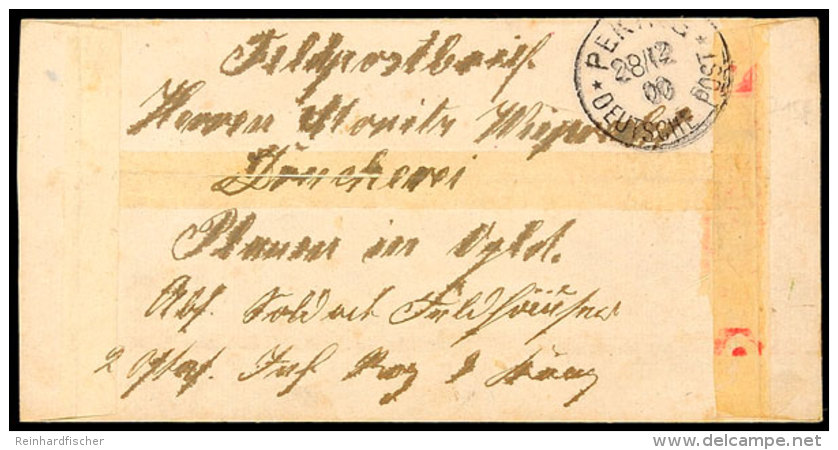 Feldpostbrief.
PEKING
28/12
00
DEUTSCHE POST
Herren Moritz
Plauen im Vgtld.
Abs. Soldat Feldhäuser
2 Ostas. Inf. Reg
Reinhardfischer
www.delcampe.net